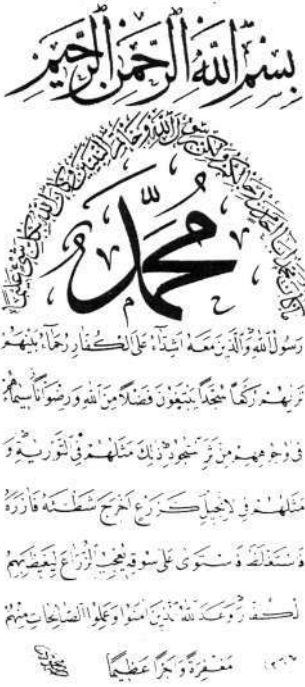 بسم الله الرحمن الرحيم
ما كان محمد ابا احد من رجالكم ولكن رسول الله وخاتم النبيين وكان الله بكل شيء عليما
محمد
رسول الله والذين معه اشداء على الكفار رحماء بينهم
تريهم ركعا سجدا يبتغون فضلا من الله ورضوانا سيماهم
في وجوههم من اثر السجود ذلك مثلهم في التورية و
مثلهم في الانجيل كزرع اخرج شطئه فازره
فاستغلظ فاستوى على سوقه يعجب الزراع ليغيظ بهم
الكفار وعد الله الذين امنوا وعملوا الصالحات منهم
مغفرة واجرا عظيما